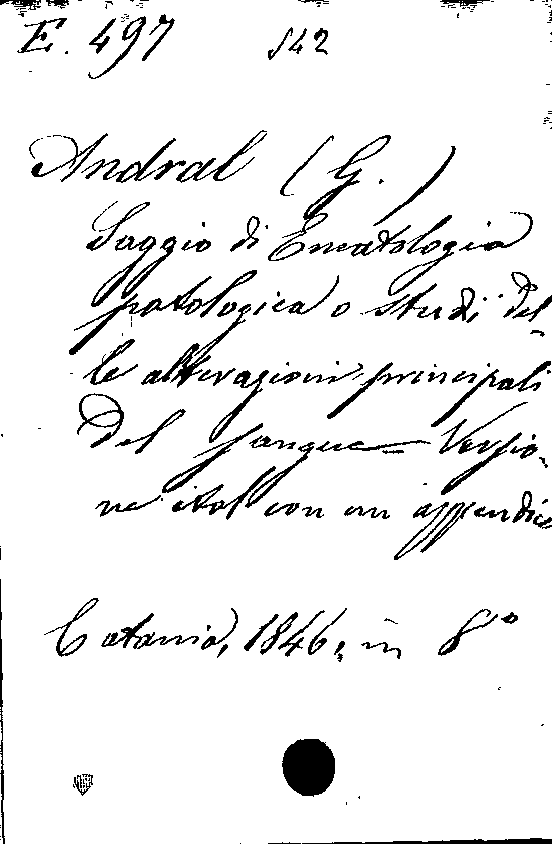 E. 497 542
Andral (G.)
Saggio di Ematologia
patologica o studi del-
le alterazioni principali
del sangue - Versio-
ne ital con un appendice
Catania, 1846, in 8°